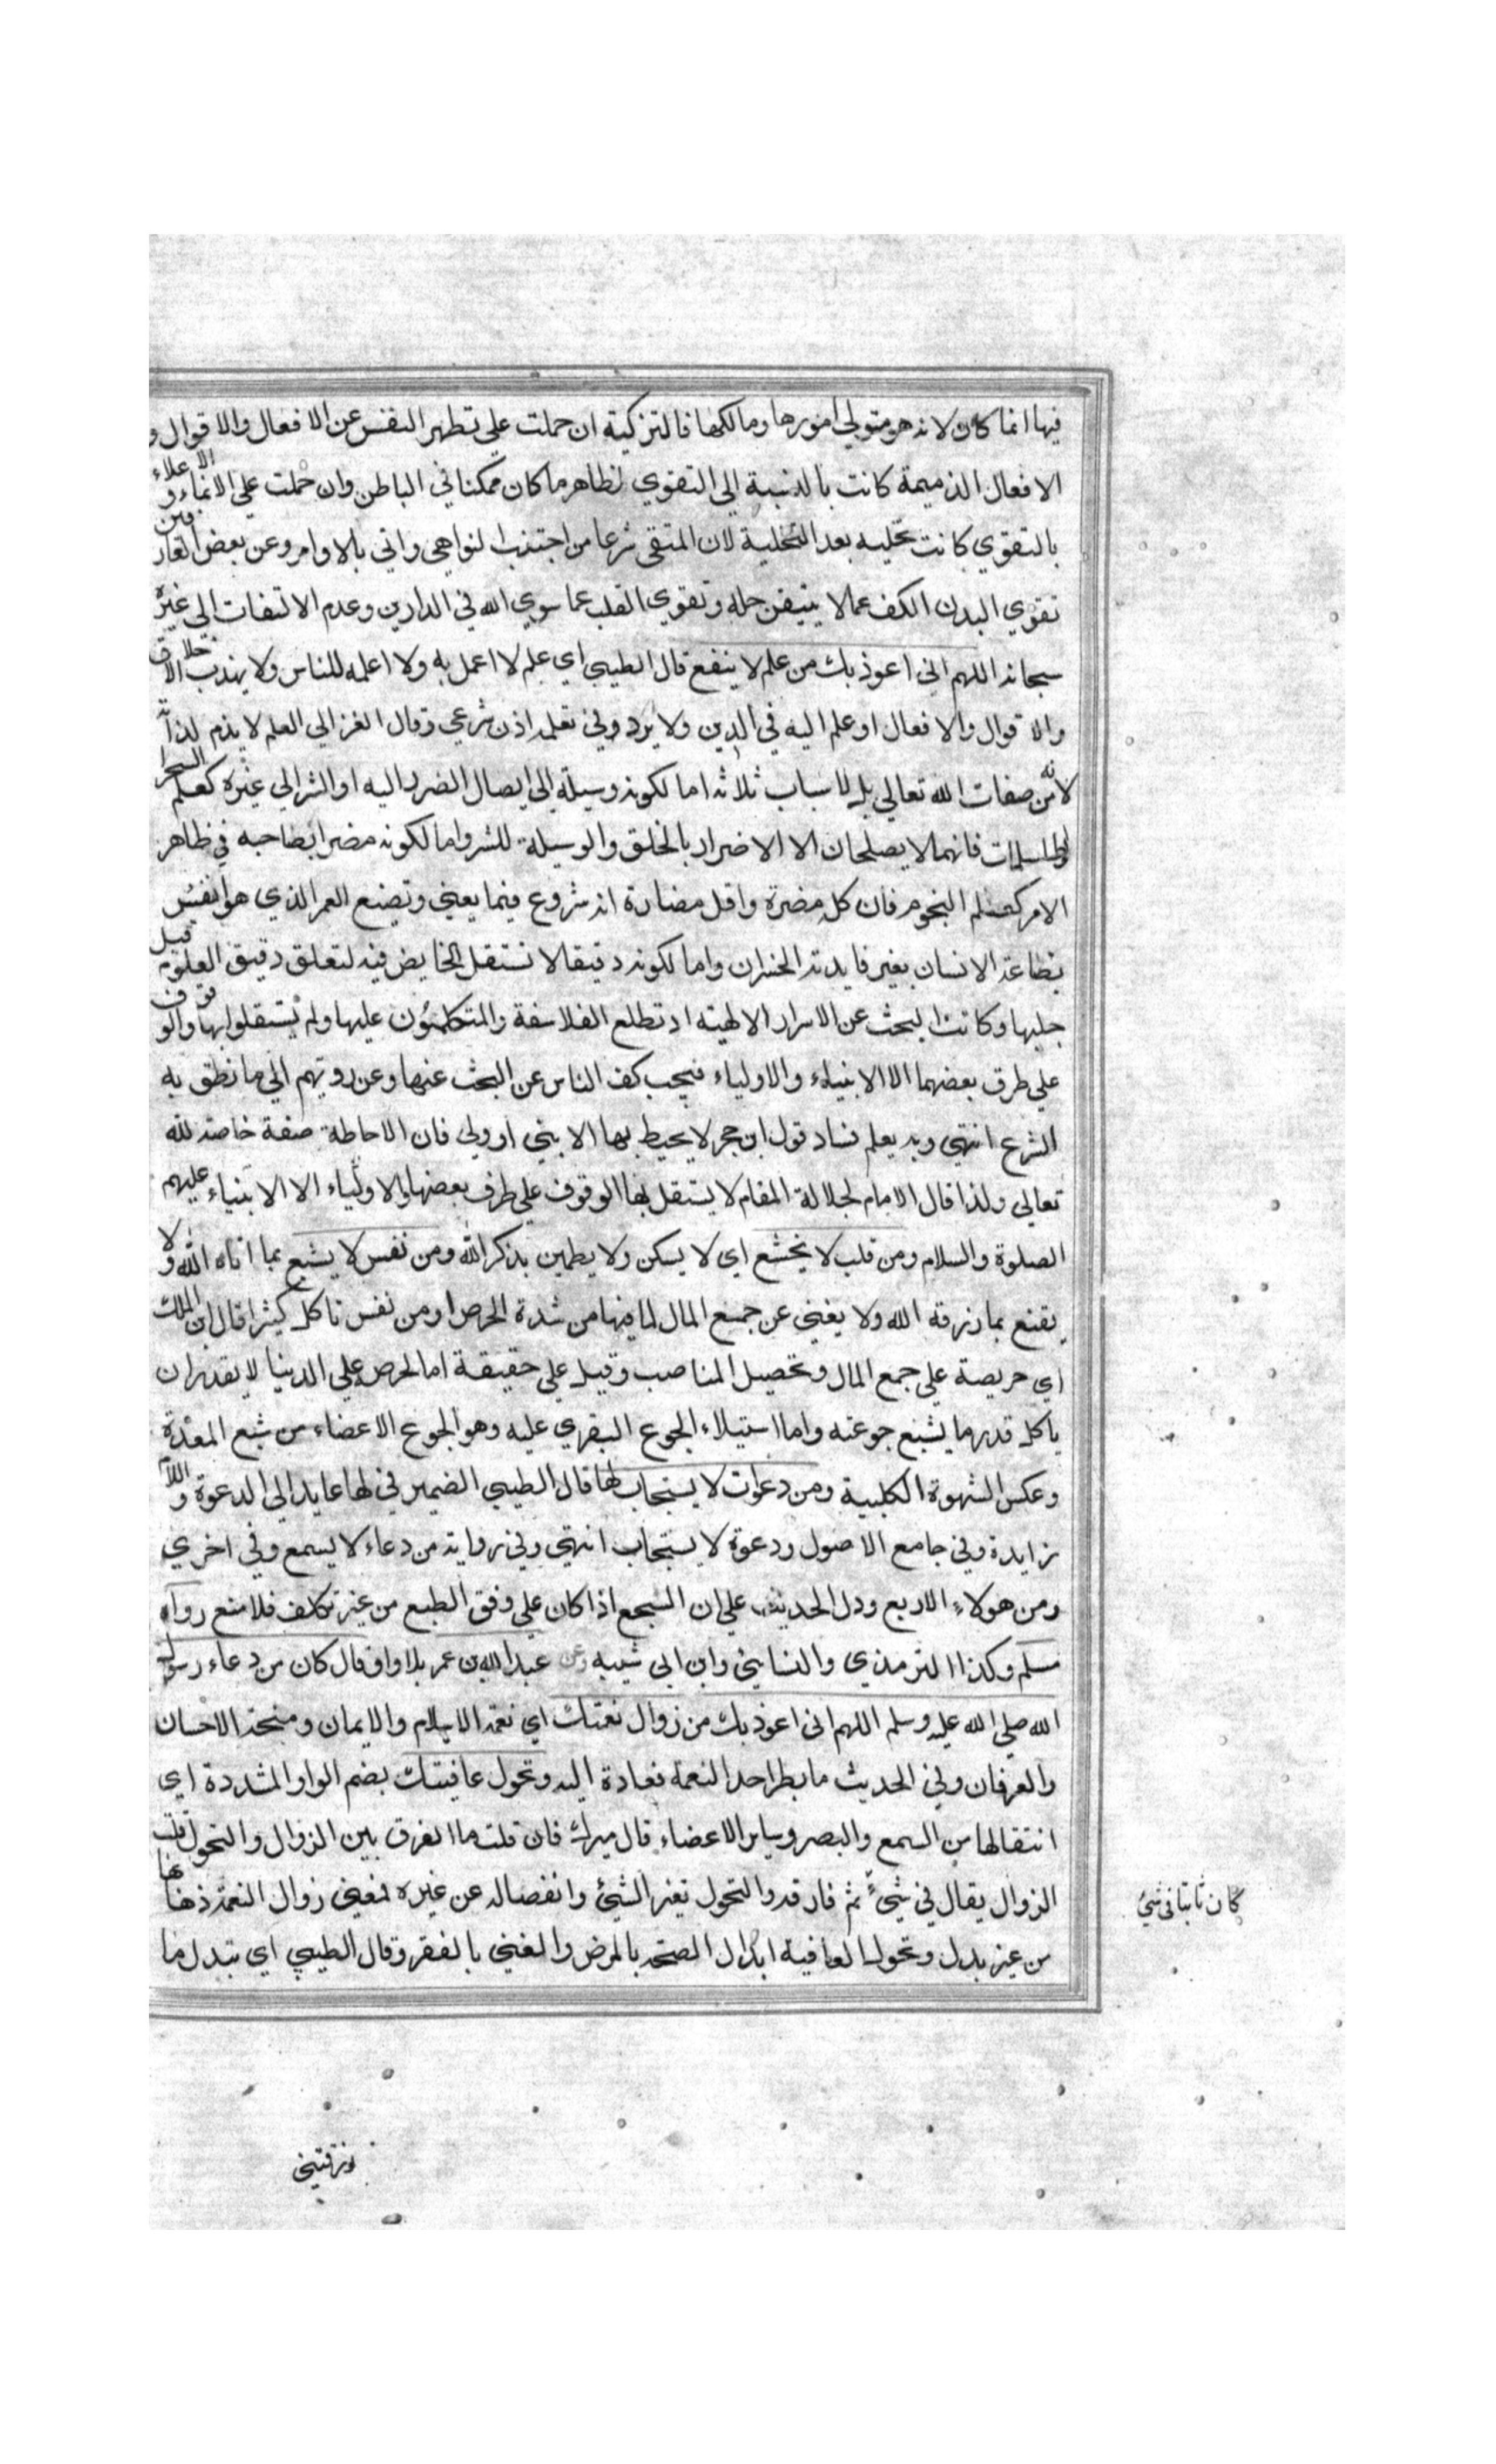 فيها انما كان لانه هو متولي امورها ومالكها فالتزكية ان حملت علي تطهر النفس عن الافعال والاقوال و
الافعال الذميمة كانت بالنسبة الي التقوي لظاهر ما كان ممكنا في الباطن وان حملت علي الانماء والاعلاء
بالتقوي كانت تحلية بعد التخلية لان المتقي شرعا من اجتنب النواهي واتي بالاوامر وعن بعض العارفين
تقوي البدن الكف عما لا يتيقن حله وتقوي القلب عما سوي الله في الدارين وعدم الالتفات الي غيره
سبحانه اللهم اني اعوذ بك من علم لا ينفع قال الطيبي اي علم لا اعمل به ولا اعلمه للناس ولا يهذب الاخلاق
والاقوال والافعال او علم اليه في الدين ولا يرد وفي تعلمه اذن شرعي وقال الغزالي العلم لا يذم لذاته
لانه من صفات الله تعالي بل لاسباب ثلاثة اما لكونه وسيلة الي ايصال الضرر اليه او الشر الي غيره كعلم السحر
والطلسمات فانهما لا يصلحان الا الاضرار بالخلق والوسيلة للشر واما لكونه مضرا بصاحبه في ظاهر
الامر كعلم النجوم فان كل مضرة واقل مضارة انه شروع فيما يعني وتضيع العمر الذي هو انفس
بضاعة الانسان بغير فايدته الخسران واما لكونه دقيقا لا تستقل الخايض فيه لتعلق دقيق العلوم قبل
جليها وكانت البحث عن الاسرار الالهية اد تطلع الفلاسفة والمتكلمون عليها ولم يستقلوا بها والوقوف
علي طرق بعضهما الا الانبياء والاولياء فيجب كف الناس عن البحث عنها وعن رويتهم الي ما نطق به
الشرع انتهي وبه يعلم فساد قول ابن حجر لا يحيط بها الا نبي او ولي فان الاحاطة صفة خاصة لله
تعالي ولذا قال الامام لجلالة المقام لا يستقل بها الوقوف علي طرف بعضها والاولياء الا الانبياء عليهم
الصلوة والسلام ومن قلب لا يخشع اي لا يسكن ولا يطمين بذكر الله ومن نفس لا يشبع بما اتاه الله ولا
يقنع بما رزقه الله ولا يغني عن جمع المال لما فيها من شدة الحرص او من نفس تاكل كثيرا قال ابن الملك
اي حريصة علي جمع المال وتحصيل المناصب وقيل علي حقيقة اما لحرص علي الدنيا لا يقدر ان
ياكل قدر ما يشبع جوعته واما استيلاء الجوع البقري عليه وهو الجوع الاعضاء من شبع المعدة
وعكس الشهوة الكلبية ومن دعوات لا يستجاب لها قال الطيبي الضمير في لها عايد الي الدعوة واللام
زايدة وفي جامع الاصول ودعوة لا يستجاب انتهي وفي رواية من دعاء لا يسمع وفي اخري
ومن هولاء الاربع ودل الحديث علي ان السجع اذا كان علي وفق الطبع من غير تكلف فلا منع رواه
مسلم وكذا الترمذي والنسايي وابن ابي شيبه وعن عبد الله بن عمر بلا واو قال كان من دعاء رسول
الله صلي الله عليه وسلم اللهم اني اعوذ بك من زوال نعمتك اي نعمة الاسلام والايمان ومنحة الاحسان
والعرفان وفي الحديث ما بطر احد النعمة فعادة اليه وتحول عافيتك بضم الواو المشددة اي
انتقالها من السمع والبصر وساير الاعضاء قال ميرك فان قلت ما الفرق بين الزوال والتحول قلت
الزوال يقال في شيء ثم فارقه والتحول تغير الشيئ وانفصاله عن غيره فمعني زوال النعمة ذهابها
كان ثابتا في شيئ
من غير بدل وتحول العافية ابدال الصحة بالمرض والغني بالفقر وقال الطيبي اي تبدل ما
ورزقتني